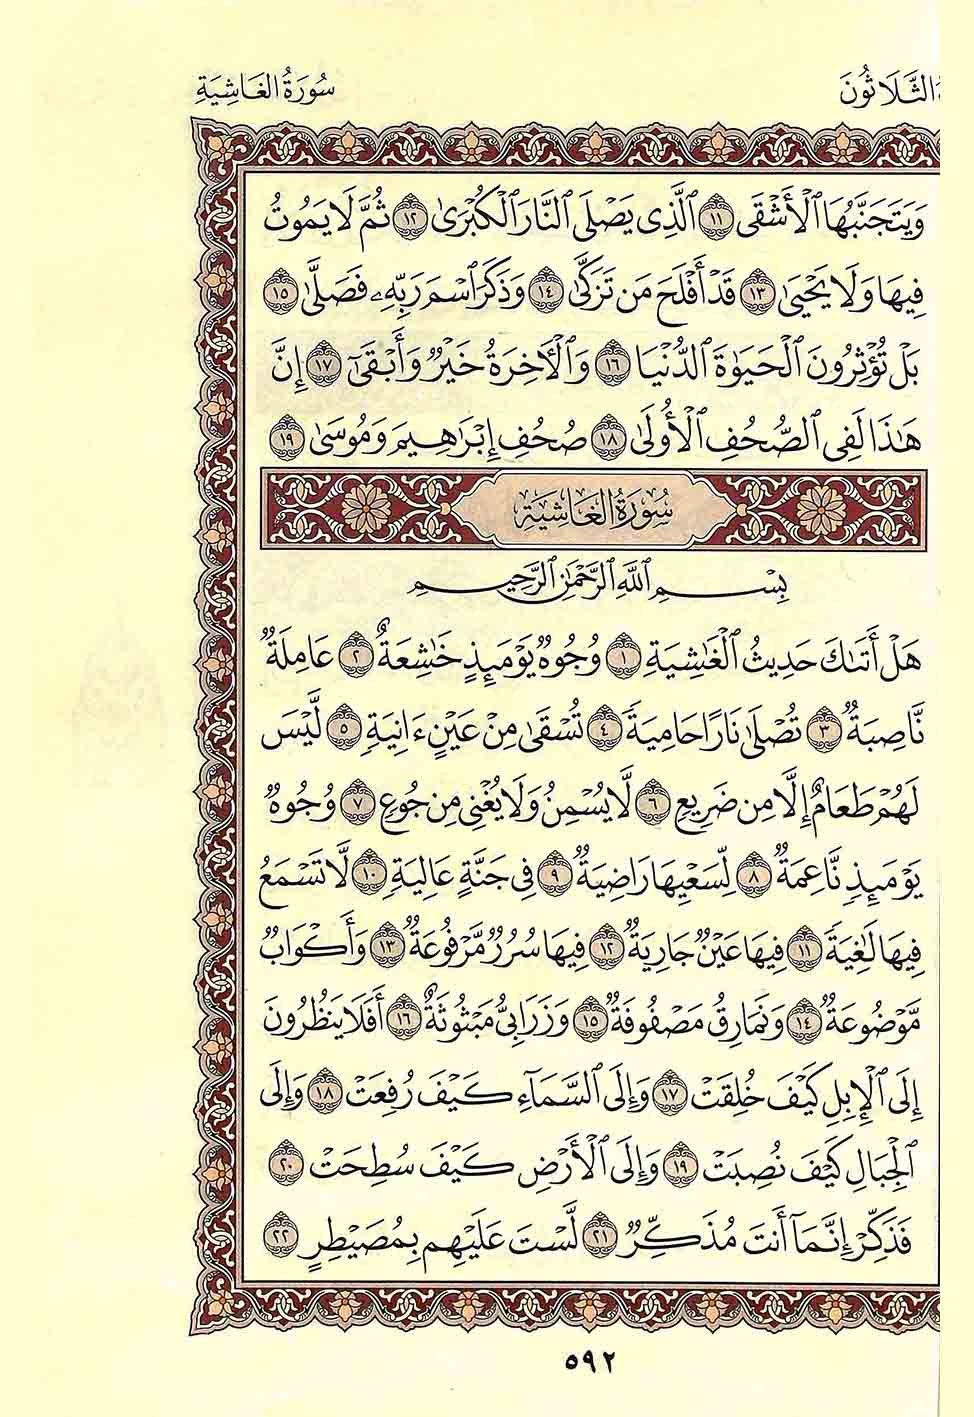 الثَّلَاثُونَ سُورَةُ الغَاشِيَةِ
وَيَتَجَنَّبُهَا ٱلْأَشْقَى ١١ ٱلَّذِى يَصْلَى ٱلنَّارَ ٱلْكُبْرَىٰ ١٢ ثُمَّ لَا يَمُوتُ
فِيهَا وَلَا يَحْيَىٰ ١٣ قَدْ أَفْلَحَ مَن تَزَكَّىٰ ١٤ وَذَكَرَ ٱسْمَ رَبِّهِۦ فَصَلَّىٰ ١٥
بَلْ تُؤْثِرُونَ ٱلْحَيَوٰةَ ٱلدُّنْيَا ١٦ وَٱلْءَاخِرَةُ خَيْرٌ وَأَبْقَىٰٓ ١٧ إِنَّ
هَٰذَا لَفِى ٱلصُّحُفِ ٱلْأُولَىٰ ١٨ صُحُفِ إِبْرَٰهِيمَ وَمُوسَىٰ ١٩
سُورَةُ الغَاشِيَةِ
بِسْمِ ٱللَّهِ ٱلرَّحْمَٰنِ ٱلرَّحِيمِ
هَلْ أَتَىٰكَ حَدِيثُ ٱلْغَٰشِيَةِ ١ وُجُوهٌ يَوْمَئِذٍ خَٰشِعَةٌ ٢ عَامِلَةٌ
نَّاصِبَةٌ ٣ تَصْلَىٰ نَارًا حَامِيَةً ٤ تُسْقَىٰ مِنْ عَيْنٍ ءَانِيَةٍ ٥ لَّيْسَ
لَهُمْ طَعَامٌ إِلَّا مِن ضَرِيعٍ ٦ لَّا يُسْمِنُ وَلَا يُغْنِى مِن جُوعٍ ٧ وُجُوهٌ
يَوْمَئِذٍ نَّاعِمَةٌ ٨ لِّسَعْيِهَا رَاضِيَةٌ ٩ فِى جَنَّةٍ عَالِيَةٍ ١٠ لَّا تَسْمَعُ
فِيهَا لَٰغِيَةً ١١ فِيهَا عَيْنٌ جَارِيَةٌ ١٢ فِيهَا سُرُرٌ مَّرْفُوعَةٌ ١٣ وَأَكْوَابٌ
مَّوْضُوعَةٌ ١٤ وَنَمَارِقُ مَصْفُوفَةٌ ١٥ وَزَرَابِىُّ مَبْثُوثَةٌ ١٦ أَفَلَا يَنظُرُونَ
إِلَى ٱلْإِبِلِ كَيْفَ خُلِقَتْ ١٧ وَإِلَى ٱلسَّمَآءِ كَيْفَ رُفِعَتْ ١٨ وَإِلَى
ٱلْجِبَالِ كَيْفَ نُصِبَتْ ١٩ وَإِلَى ٱلْأَرْضِ كَيْفَ سُطِحَتْ ٢٠
فَذَكِّرْ إِنَّمَآ أَنتَ مُذَكِّرٌ ٢١ لَّسْتَ عَلَيْهِم بِمُصَيْطِرٍ ٢٢
٥٩٢